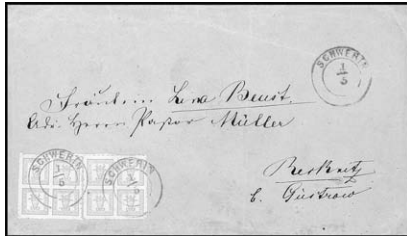 SCHWERIN
1/5
Fräulein Lina Beust.
Adr. Herrn Pastor Müller
Recknitz
b. Güstrow
SCHWERIN
1/5
SCHWERIN
1/5